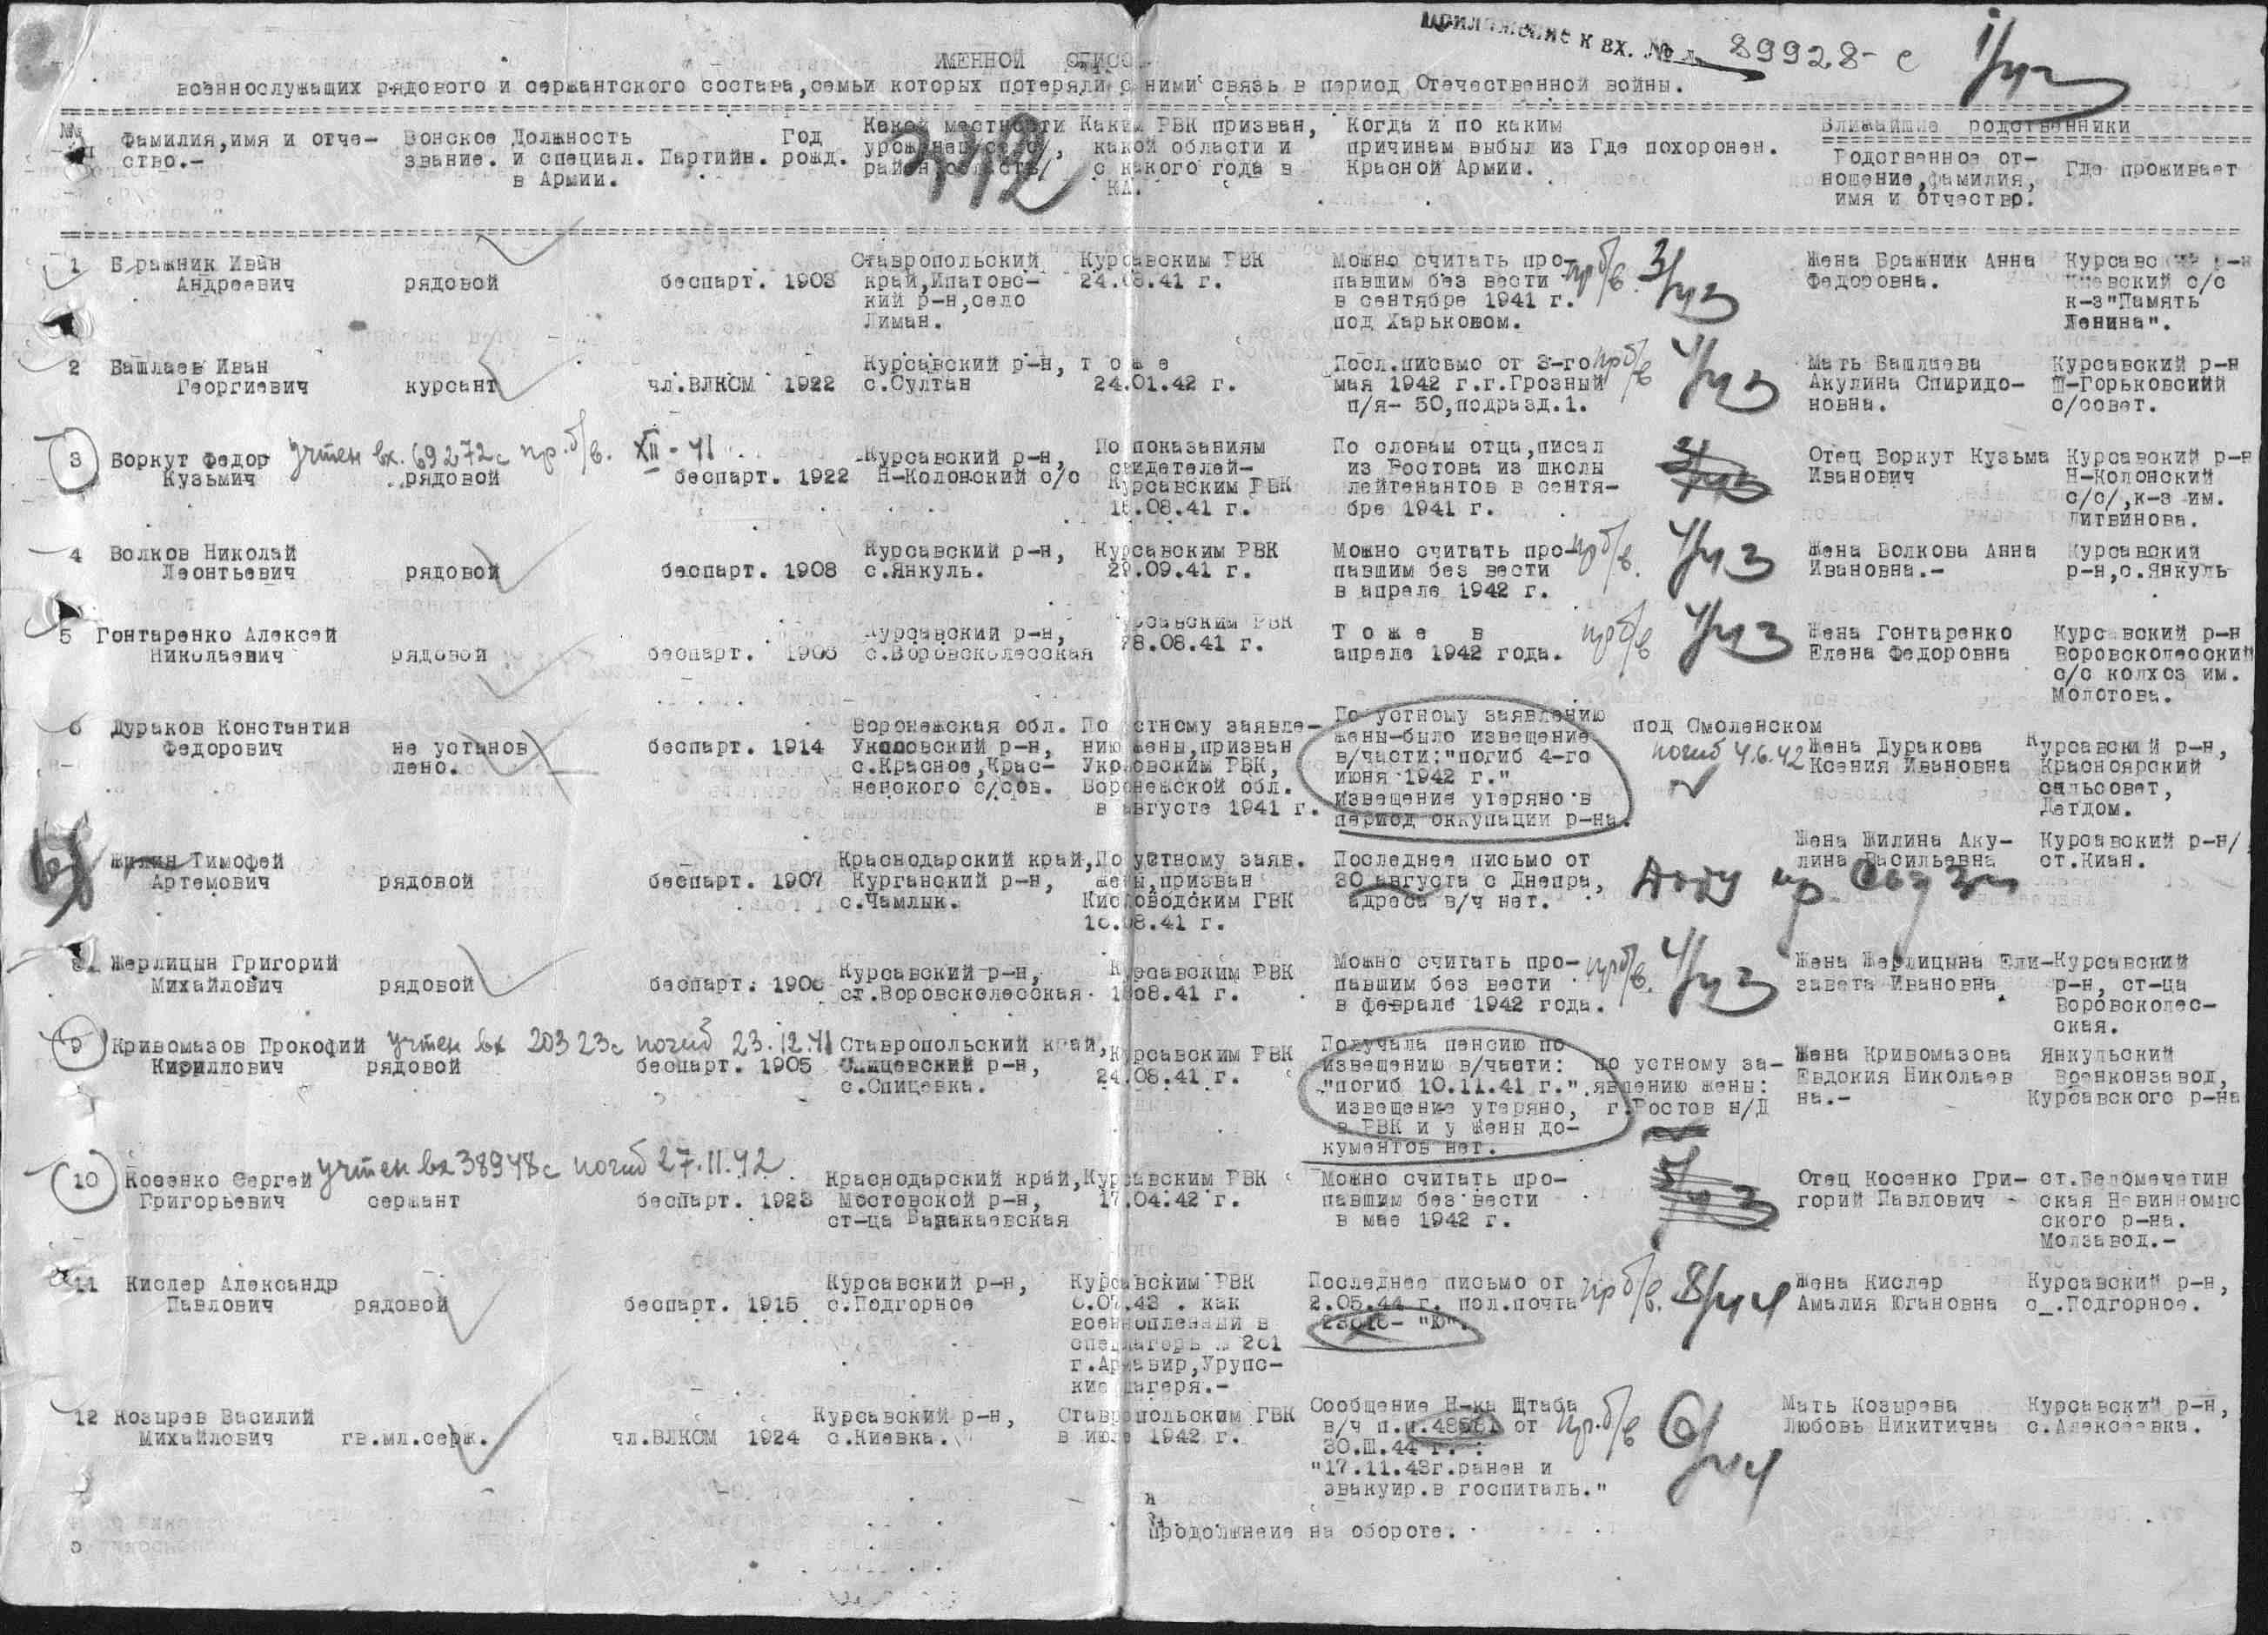 Приложение к вх. № 89928-с
ИМЕННОЙ СПИСОК
военнослужащих рядового и сержантского состава,семьи которых потеряли с ними связь в период Отечественной войны.
Фамилия,имя и отче-ство.- Воинское звание. Должность и специал. в Армии. Партийн. Год рожд. Какой местности Каким РВК призван, какой области и с какого года в КА. Когда и по каким причинам выбыл из Красной Армии. Где похоронен. Ближайшие родственники
Родственное от-ношение,фамилия, имя и отчество. Где проживает
1 Бражник Иван Ставропольский Курсавским РВК Можно считать про- пр б/в. 3/уч3 Жена Бражник Анна Курсавский р-н
Андреевич рядовой беспарт. 1903 край,Ипатовс- 24.08.41 г. павшим без вести Федоровна. с/с
кий р-н,село в сентябре 1941 г. к-з"Память
Лиман. под Харьковом. Ленина".
2 Башлаев Иван Курсавский р-н, т о ж е Посл.письмо от 3-го пр б/в 4/уч3 Мать Башлаева Курсавский р-н
Георгиевич курсант чл.ВЛКСМ 1922 с.Султан 24.01.42 г. мая 1942 г.г.Грозный Акулина Спиридо- Ш-Горьковский
п/я- 50,подразд.1. новна. с/совет.
3 Боркут Федор учтен вх. 69272с пр.б/в. XII-41 Курсавский р-н, По показаниям По словам отца,писал Отец Боркут Кузьма Курсавский р-н
Кузьмич рядовой беспарт. 1922 Н-Колонский с/с свидетелей- из Ростова из школы Иванович Н-Колонский
Курсавским РВК лейтенантов в сентя- с/с/,к-з им.
.08.41 г. бре 1941 г. Литвинова.
4 Волков Николай Курсавский р-н, Курсавским РВК Можно считать про- пр б/в. 4/уч3 Жена Волкова Анна Курсавский
Леонтьевич рядовой беспарт. 1908 с.Янкуль. 29.09.41 г. павшим без вести Ивановна.- р-н,с.Янкуль
в апреле 1942 г.
5 Гонтаренко Алексей Курсавский р-н, Курсавским РВК Т о ж е в пр б/в 4/уч3 Жена Гонтаренко Курсавский р-н
Николаевич рядовой беспарт. с.Воровсколесская 28.08.41 г. апреле 1942 года. Елена Федоровна Воровсколесский
с/с колхоз им.
Молотова.
6 Дураков Константин Воронежская обл. По устному заявле- По устному заявлению под Смоленском
Федорович не установ беспарт. 1914 Уколовский р-н, нию жены,призван жены-было извещение погиб 4.6.42 Жена Дуракова Курсавский р-н,
лено. с.Красное,Крас- Укловским РВК, в/части:"погиб 4-го Ксения Ивановна Красноярский
ненского с/сов. Воронежской обл. июня 1942 г." сельсовет,
в августе 1941 г. извещение утеряно в Детдом.
период оккупации р-на.
Жилин Тимофей Краснодарский край, По устному заяв. Последнее письмо от Жена Жилина Аку- Курсавский р-н/
Артемович рядовой беспарт. 1907 Курганский р-н, жены,призван 30 августа с Днепра, лина Васильевна ст.Киан.
с.Чамлык. Кисловодским ГВК адреса в/ч нет.
.08.41 г.
8. Жерлицын Григорий Курсавский р-н, Курсавским РВК Можно считать про- пр б/в. 4/уч3 Жена Жерлицына Ели- Курсавский
Михайлович рядовой беспарт. ст.Воровсколесская 08.41 г. павшим без вести завета Ивановна р-н, ст-ца
в феврале 1942 года. Воровсколес-
ская.
9 Кривомазов Прокофий учтен вх 20323с погиб 23.12.41 Ставропольский край, Курсавским РВК Получала пенсию по Жена Кривомазова Янкульский
Кириллович рядовой беспарт. 1905 Спицевский р-н, 24.08.41 г. извещению в/части: по устному за- Евдокия Николаев Военконзавод,
с.Спицевка. "погиб 10.11.41 г." явлению жены: на.- Курсавского р-на
извещение утеряно, г.Ростов н/Д
в РВК и у жены до-
кументов нет.
10 Косенко Сергей учтен вх 38948с погиб 27.11.42 Краснодарский край, Курсавским РВК Можно считать про- Отец Косенко Гри- ст.Беломечетин
Григорьевич сержант беспарт. 1923 Мостовской р-н, 17.04.42 г. павшим без вести горий Павлович - ская Невинномыс
ст-ца Баракаевская в мае 1942 г. ского р-на.
Молзавод.-
11 Кислер Александр Курсавский р-н, Курсавским РВК Последнее письмо от пр б/в. 8/уч4 Жена Кислер Курсавский р-н,
Павлович рядовой беспарт. 1915 с.Подгорное .07.43 . как 2.05.44 г. пол.почта Амалия Югановна с_.Подгорное.
военнопленный в - "Ю".
спецлагерь № 261
г.Армавир,Урупс-
кие лагеря.-
12 Козырев Василий Курсавский р-н, Ставропольским ГВК Сообщение Н-ка Штаба пр.б/в 6/уч4 Мать Козырева Курсавский р-н,
Михайлович гв.мл.серж. чл.ВЛКСМ 1924 с.Киевка. в июле 1942 г. в/ч п.п. от Любовь Никитична с.Алексеевка.
30.Ш.44 г. :
"17.11.43г.ранен и
эвакуир.в госпиталь."
Продолжнеие на обороте.